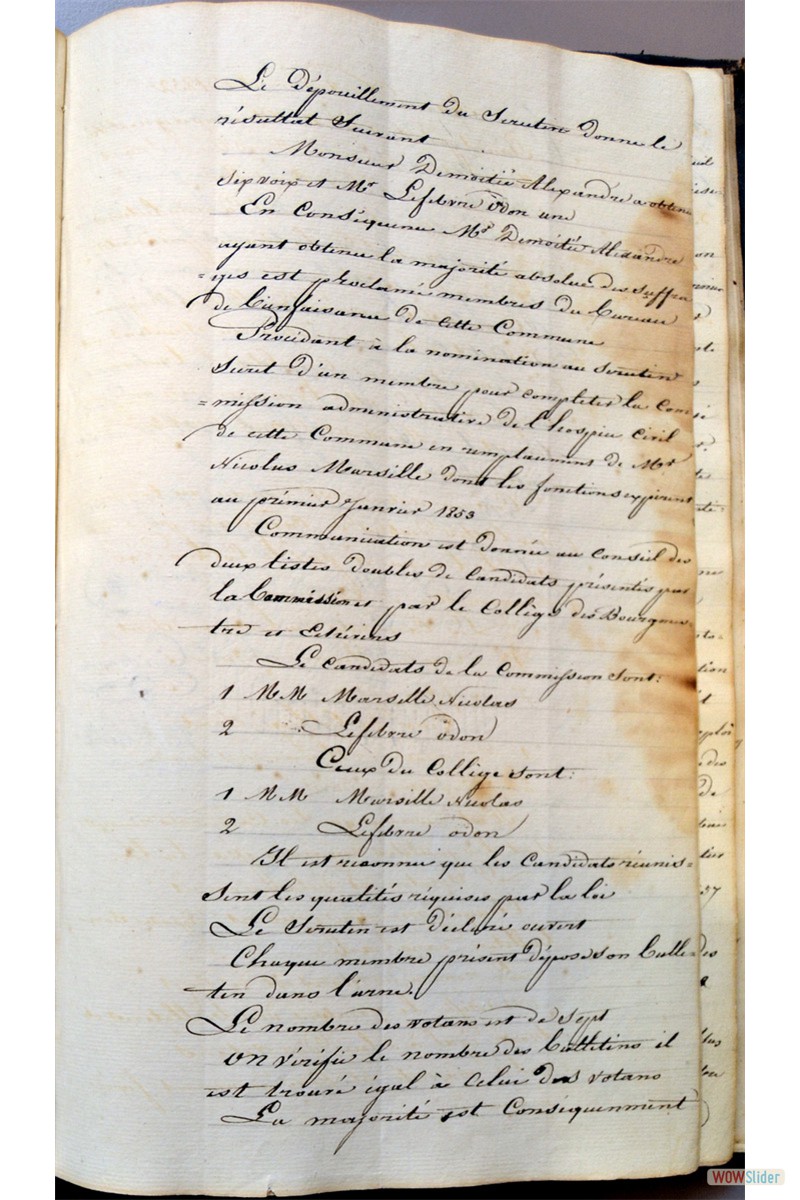 Le Dépouillement du Scrutin donne le
résultat Suivant
Monsieur Demoitié Alexandre a obtenu
six voix et Mr Lefebvre odon une
En Conséquence Mr Demoitié Alexandre
ayant obtenu la majorité absolue des suffra
=ges est proclamé membres du bureau
de bienfaisance de cette Commune
Procédant à la nomination au scrutin
secret d'un membre pour completer la Com
=mission administrative de l'hospice civil
de cette Commune en remplacement de Mr
Nicolas Marsille dont les fonctions expirent
au prémier Janvier 1853
Communication est donnée au Conseil des
deux listes doubles de Candidats présentés par
la Commission et par le Collège des Bourgmes-
tre et Echevins
Le candidats de la Commission sont:
1 MM Marsille Nicolas
2 Lefebvre odon
Ceux du Collège sont:
1 MM Marsille Nicolas
2 Lefebvre odon
Il est reconnu que les Candidats réunis=
sent les qualités réquises par la loi
Le Scrutin est déclaré ouvert
Chaque membre présent dépose son bulle-
tin dans l'urne.
Le nombre des votans est de sept
on vérifie le nombre des bulletins il
est trouvé égal à celui des votans
La majorité est Conséquenment
WOWSlider